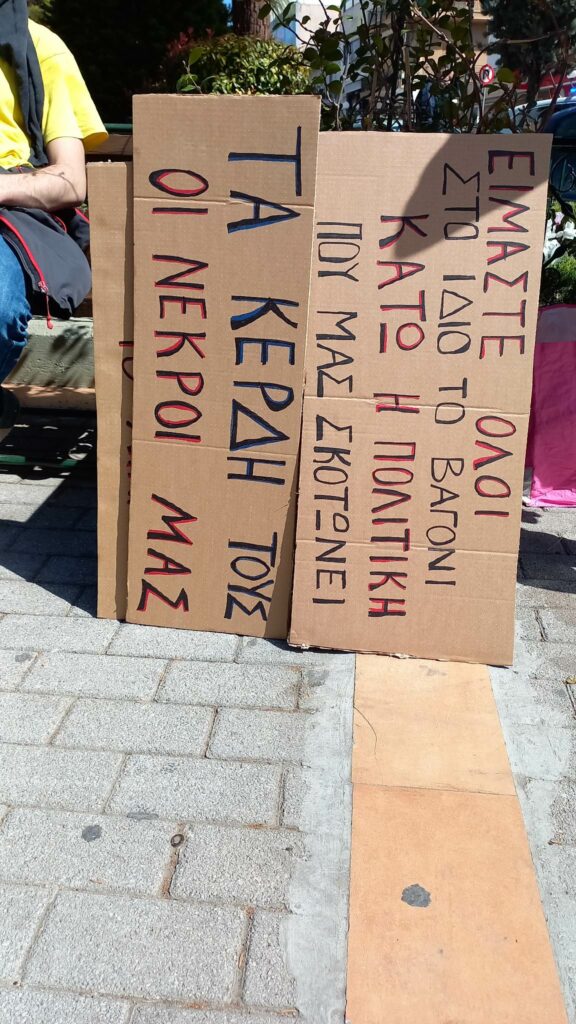 ΤΑ ΚΕΡΔΗ ΤΟΥΣ
ΟΙ ΝΕΚΡΟΙ ΜΑΣ
ΕΙΜΑΣΤΕ ΟΛΟΙ
ΣΤΟ ΙΔΙΟ ΤΟ ΒΑΓΟΝΙ
ΚΑΤΩ Η ΠΟΛΙΤΙΚΗ
ΠΟΥ ΜΑΣ ΣΚΟΤΩΝΕΙ